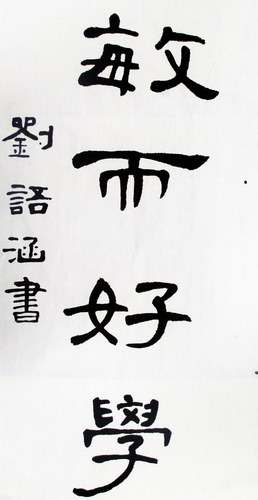 敏而好學
劉語涵書